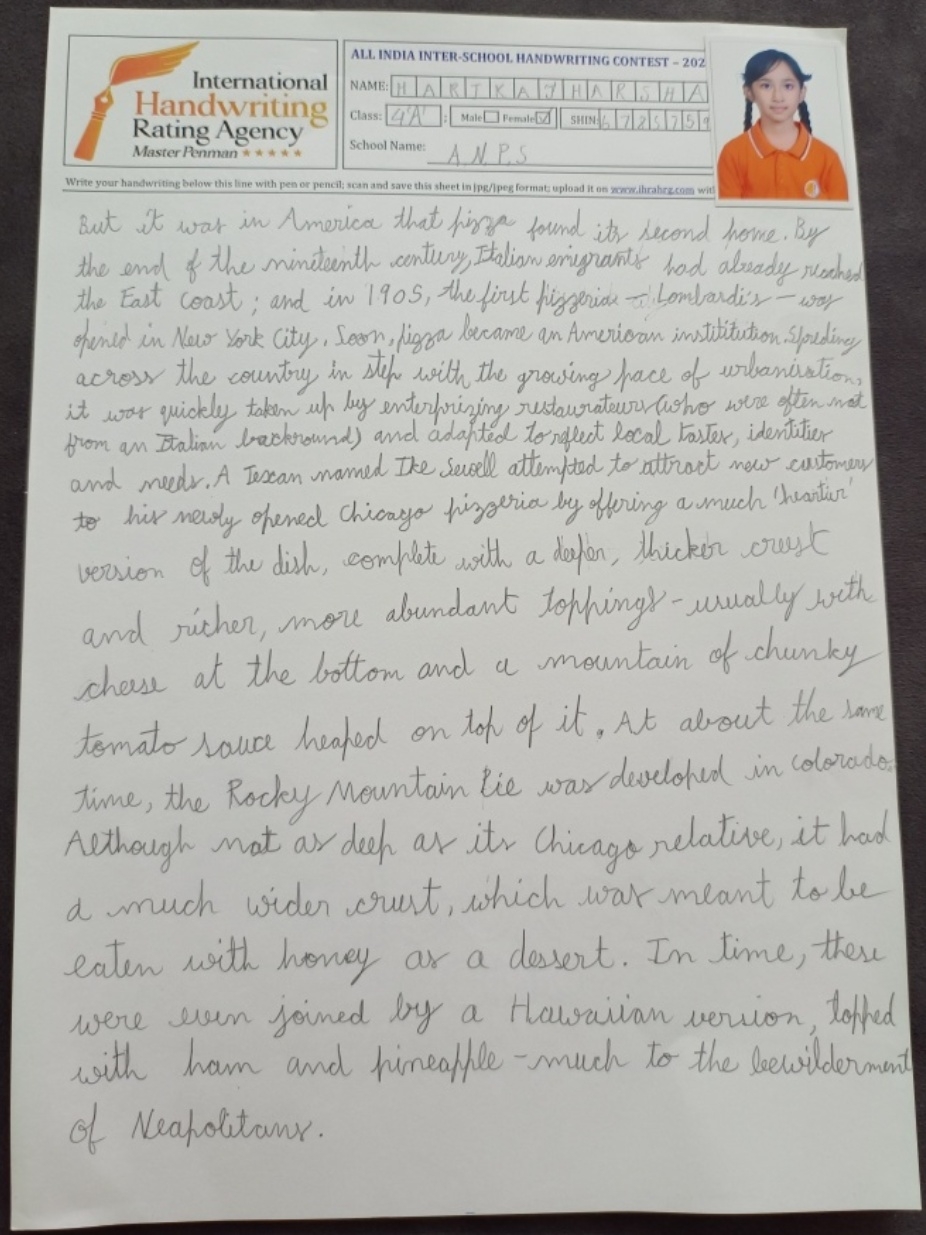 International
Handwriting
Rating Agency
Master Penman ★★★★★
ALL INDIA INTER-SCHOOL HANDWRITING CONTEST – 202
NAME: HARIKA Y HARSHA
Class: 4'A' : Male Female SHIN: 6 7 2 5 7 5 9
School Name: A.N.P.S
Write your handwriting below this line with pen or pencil; scan and save this sheet in jpg/jpeg format; upload it on www.ihrahrg.com wit
But it was in America that pizza found its second home. By
the end of the nineteenth century, Italian emigrants had already reached
the East Coast; and in 1905, the first pizzeria – Lombardi's – was
opened in New York City. Soon, pizza became an American instititution. Spreding
across the country in step with the growing pace of urbanisation,
it was quickly taken up by enterprizing restaurateurs (who were often not
from an Italian backround) and adapted to reflect local tastes, identities
and needs. A Texan named Ike Sewell attempted to attract new customers
to his newly opened Chicago pizzeria by offering a much 'heartier'
version of the dish, complete with a deeper, thicker crust
and richer, more abundant toppings – usually with
cheese at the bottom and a mountain of chunky
tomato sauce heaped on top of it. At about the same
time, the Rocky Mountain Pie was developed in colorado.
Although not as deep as its Chicago relative, it had
a much wider crust, which was meant to be
eaten with honey as a dessert. In time, these
were even joined by a Hawaiian version, topped
with ham and pineapple – much to the bewilderment
of Neapolitans.